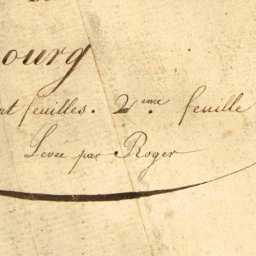 ourg
feuilles. 2.ème feuille
Levée par Roger